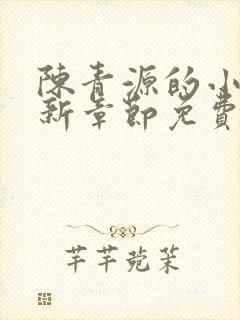 陳青源的小
新章節免費
芊芊菀茉